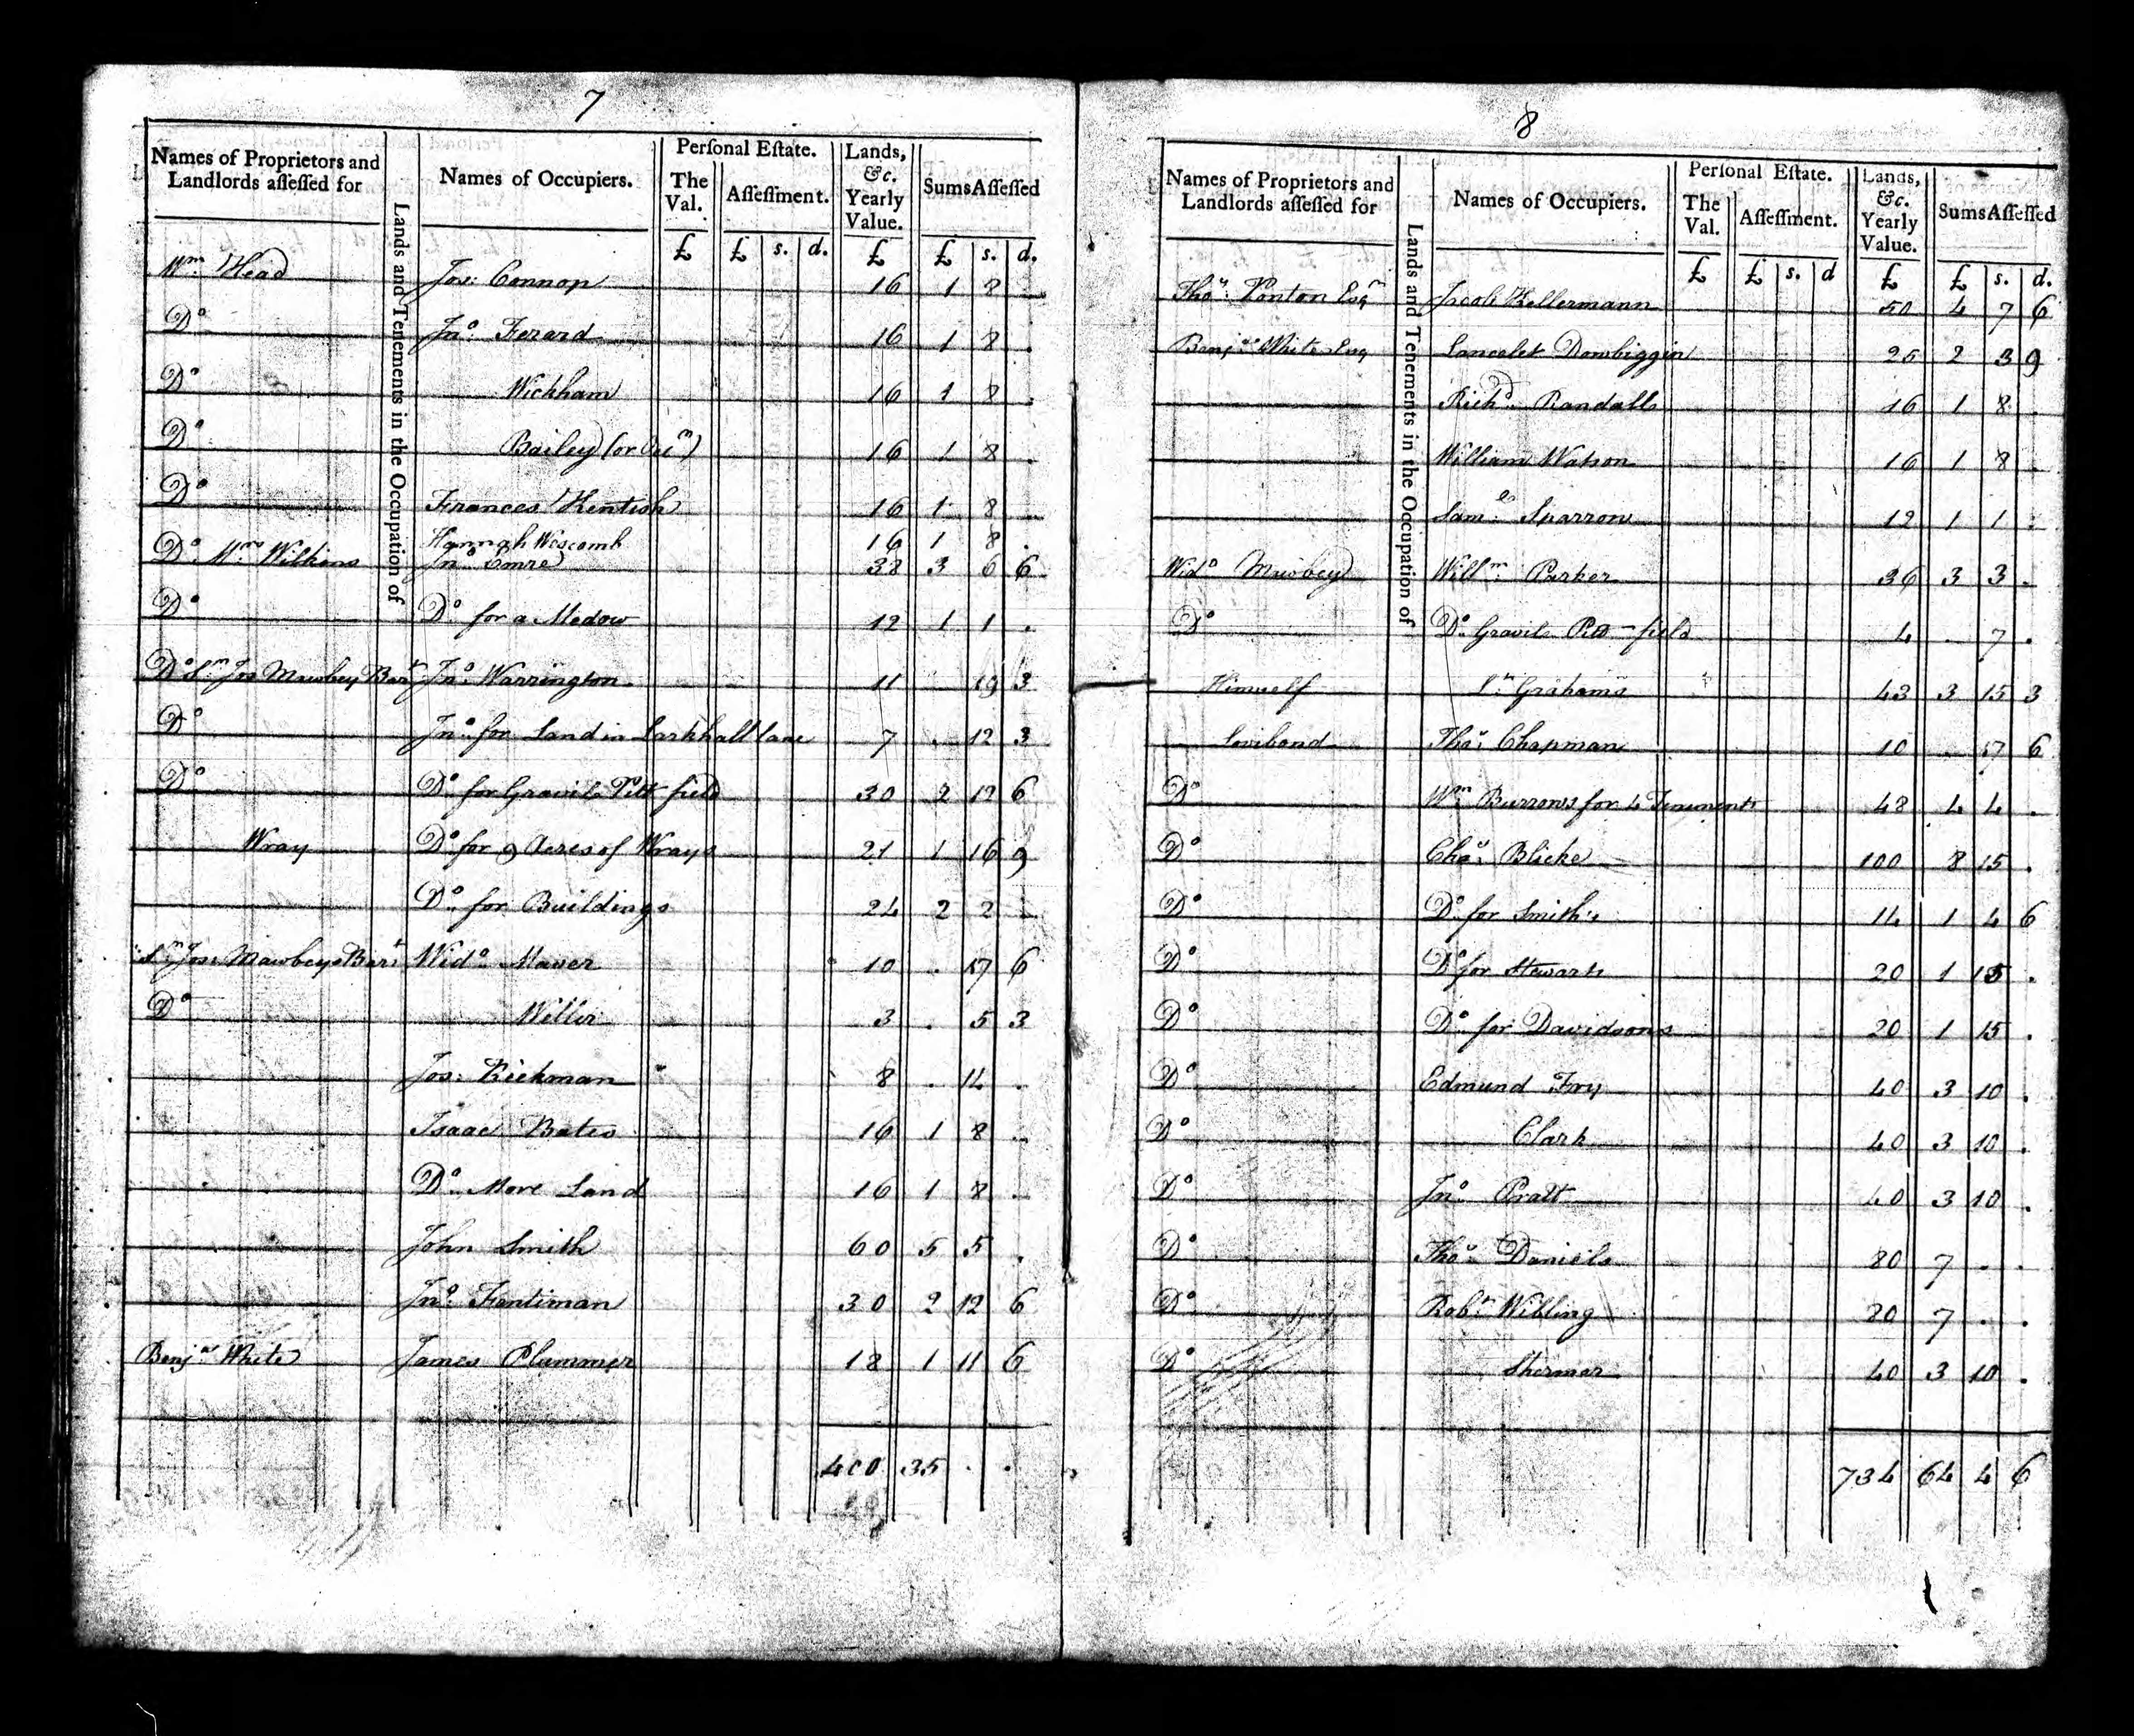 7
Names of Proprietors and Landlords aſſeſſed for
Lands and Tenements in the Occupation of
Names of Occupiers.
Perſonal Eſtate.
The Val.
Aſſeſſment.
Lands, &c. Yearly Value.
Sums Aſſeſſed
£ £ s. d. £ £ s. d.
Wm. Head Jos: Connop 16 1 8 .
Do Jno. Ferard 16 1 8 .
Do Wickham 16 1 8 .
Do Bailey (or Occr) 16 1 8 .
Do Frances Kentish 16 1 8 .
Hannah Wescomb 16 1 8 .
Do. Mrs Wilkins Jno 38 3 6 6
Do Do. for a Medow 12 1 1 .
Do Sr. Jos Mawbey Bart Jno. Warrington 11 19 3
Do Jno. for Land in Larkhall lane 7 . 12 3
Do Do for Gravil Pitt field 30 2 12 6
Wray Do for 9 Acres of Wrays 21 1 16 9
Do. for Buildings 24 2 2 .
Sr. Jos. Mawbey Bart Wido. Maver 10 . 17 6
Do Willir 3 . 5 3
Jos: Rickman 8 . 14 .
Isaac Bates 16 1 8 .
Do. More Land 16 1 8 .
John Smith 60 5 5 .
Jno. Fentiman 30 2 12 6
Benjn White James Plummer 18 1 11 6
400 35 . .
8
Names of Proprietors and Landlords aſſeſſed for
Lands and Tenements in the Occupation of
Names of Occupiers.
Perſonal Eſtate.
The Val.
Aſſeſſment.
Lands, &c. Yearly Value.
Sums Aſſeſſed
£ £ s. d £ £ s. d.
Thos. Ponton Esqr Jacob Kellermann 50 4 7 6
Benjn White Esq Lancelet Dowbiggin 25 2 3 9
Richd. Randalls 16 1 8 .
William Watson 16 1 8 .
Saml. Sparrow 12 1 1 .
Wido Mawbey Willm. Parker 36 3 3 .
Do Do. Gravil Pitt field 4 . 7 .
Himself Sr. Grahams 43 3 15 3
Lovibond Thos. Chapman 10 17 6
Do Wm. Burrows for 4 Tenements 48 4 4 .
Do Chas. Blicke 100 8 15 .
Do Do. for Smith's 14 1 4 6
Do Do for Stewarts 20 1 15 .
Do Do. for Davidsons 20 1 15 .
Do Edmund Fry 40 3 10 .
Do Clark 40 3 10 .
Do Jno. Pratt 40 3 10 .
Do Thos. Daniels 80 7 . .
Do Robt. Wibling 80 7 . .
Do Shermer 40 3 10 .
734 64 4 6